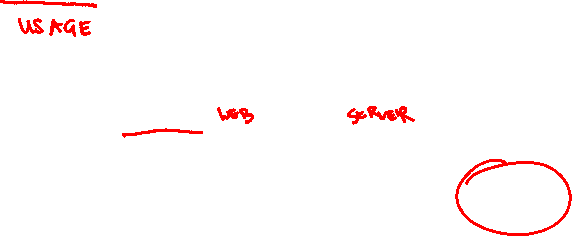 USAGE
WEB SERVER